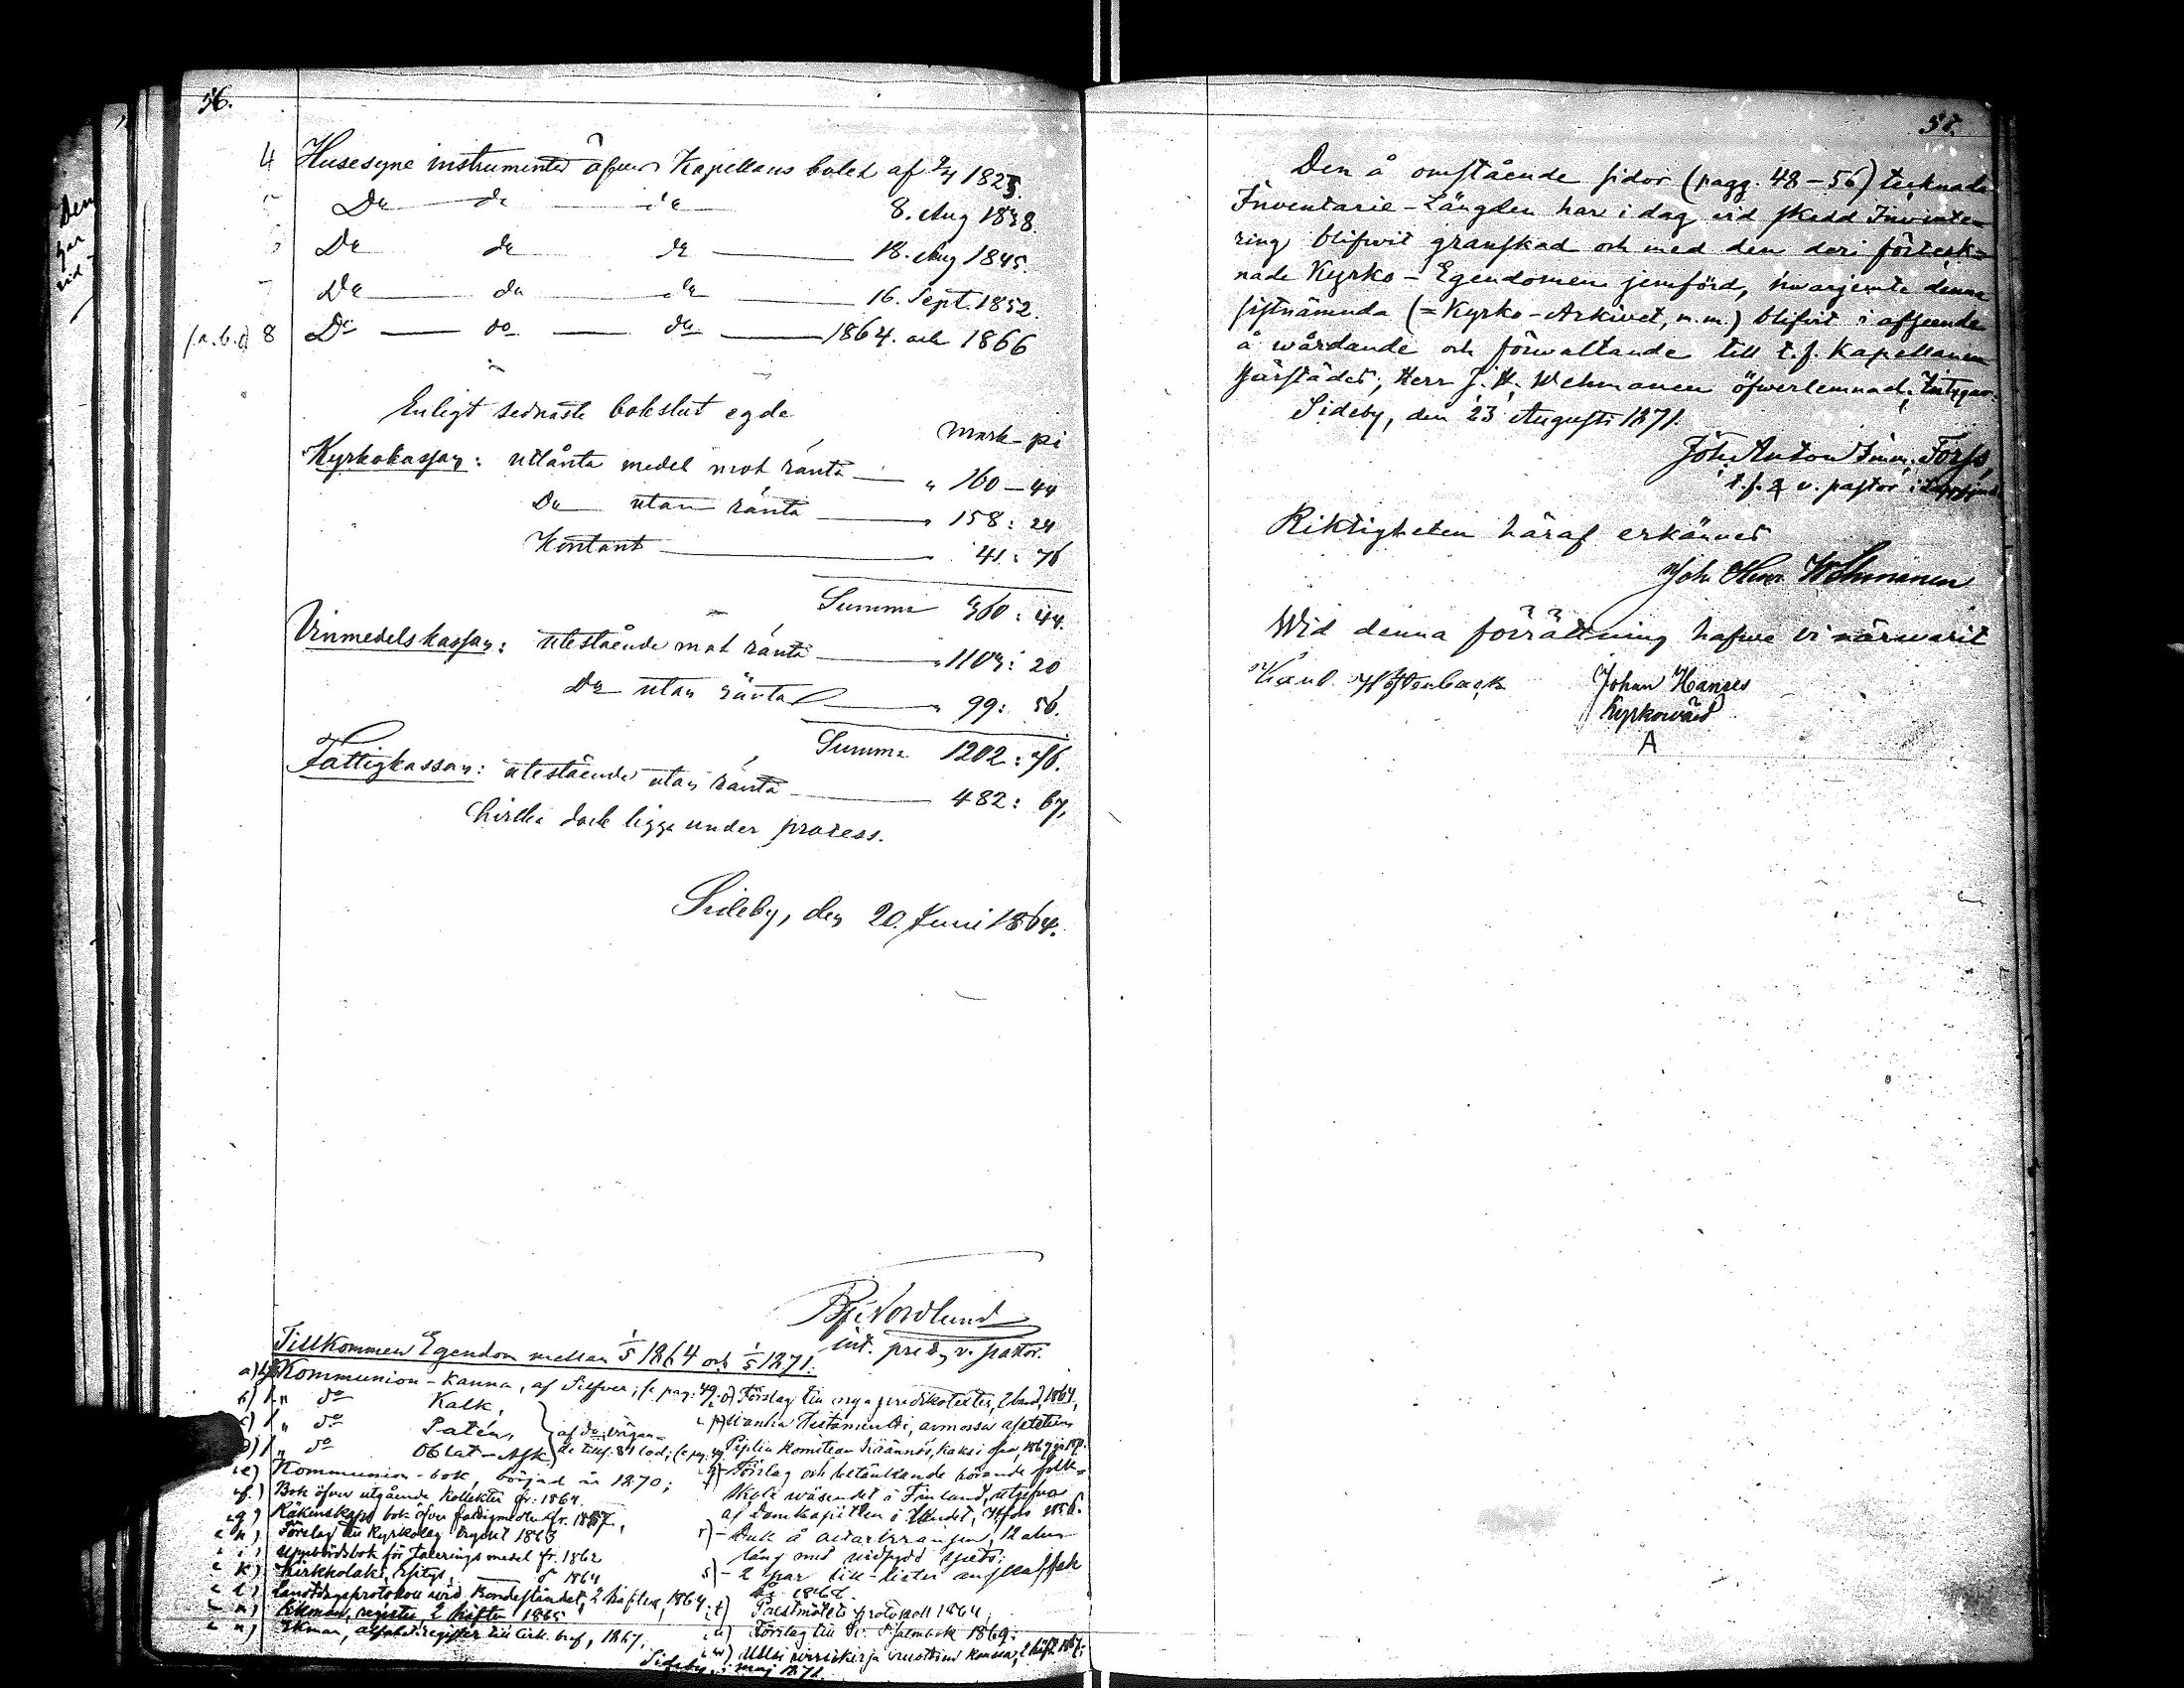 56.
4 Husesyne instrumenter öfver Kapellans bolet af 2/4 1825.
Do do do 8. Aug 1838.
Do do do 18. Aug 1845.
Do do do 16. Sept. 1852.
(a.b.c) 8 Do do do 1864. och 1866
Enligt sednaste bokslut egde
Mark pi
Kyrkokassan: utlånta medel mot ränta " 160 - 44
Do utan ränta " 158: 24
Kontant " 41: 76
Summa 360: 44.
Vinmedelskassan: utestående mot ränta " 1103: 20
Do utan ränta " 99: 56.
Summa 1202: 76.
Fattigkassan: utestående utan ränta 482: 67,
hvilka dock ligga under process.
Sideby, den 20. Juni 1864.
Nordlund
int. pred. v. pastor.
Tillkommen Egendom mellan 1/5 1864 och 1/5 1871.
a) Kommunion-kanna, af Silfver; se pag: 49.
b) 1 " do Kalk,
c) 1 " do Patén,
d) 1 " do Oblat-Ask
e) Kommunion-bok, börjad år 1870;
f) Bok öfver utgående Kollekter fr. 1864.
g) Räkenskaps bok öfver fattigmedlen fr. 1867,
h) Förslag till Kyrkolag tryckt 1863
i) Uppbördsbok för taxerings medel fr. 1862
k) Kirkkolaki, Esitys, do 1864
l) Landtdagsprotokoll vid Bondeståndet, 2 häften, 1864.
m) Ekman, register, 2 häften 1865
n) Ekman, alfabet. register till Cirk. bref, 1867.
o) Förslag till nya predikotexter, 1 band, 1864,
p) Testamentti,
Piplia Komitean
q) Förslag och betänkande rörande folk-
skole wäsendet i Finland, utgifna
af Domkapitlen i landet, Hfors 1856.
r) - Duk å altarkransen, 12 alnar
lång med
s) - 2 par
år 1868
t) Prestmötets protokoll 1864
u) Förslag till Sv. Psalmbok 1869.
v) Uusi wirsikirja
Sideby, i maj 1871.
57.
Den å omstående sidor (pagg. 48-56) tecknade
Inventarie-Längden har i dag vid skedd Invente-
ring blifvit granskad och med den deri förteck-
nade Kyrko-Egendomen jemförd, hwarjemte denna
sistnämnda (= Kyrko-Arkivet, m.m.) blifvit i afseende
å wårdande och förwaltande till t.f. Kapellanen
härstädes, Herr J. H. Wehmanen öfwerlemnad; Intygar:
Sideby, den 23 Augusti 1871.
Joh. Anton Imm. Forss,
t.f. v. pastor i Lappfjerd
Riktigheten häraf erkännes
Joh. Henr. Wehmanen
Wid denna förrättning hafwa vi närwarit
Johan Hanses
Kyrkowärd
A